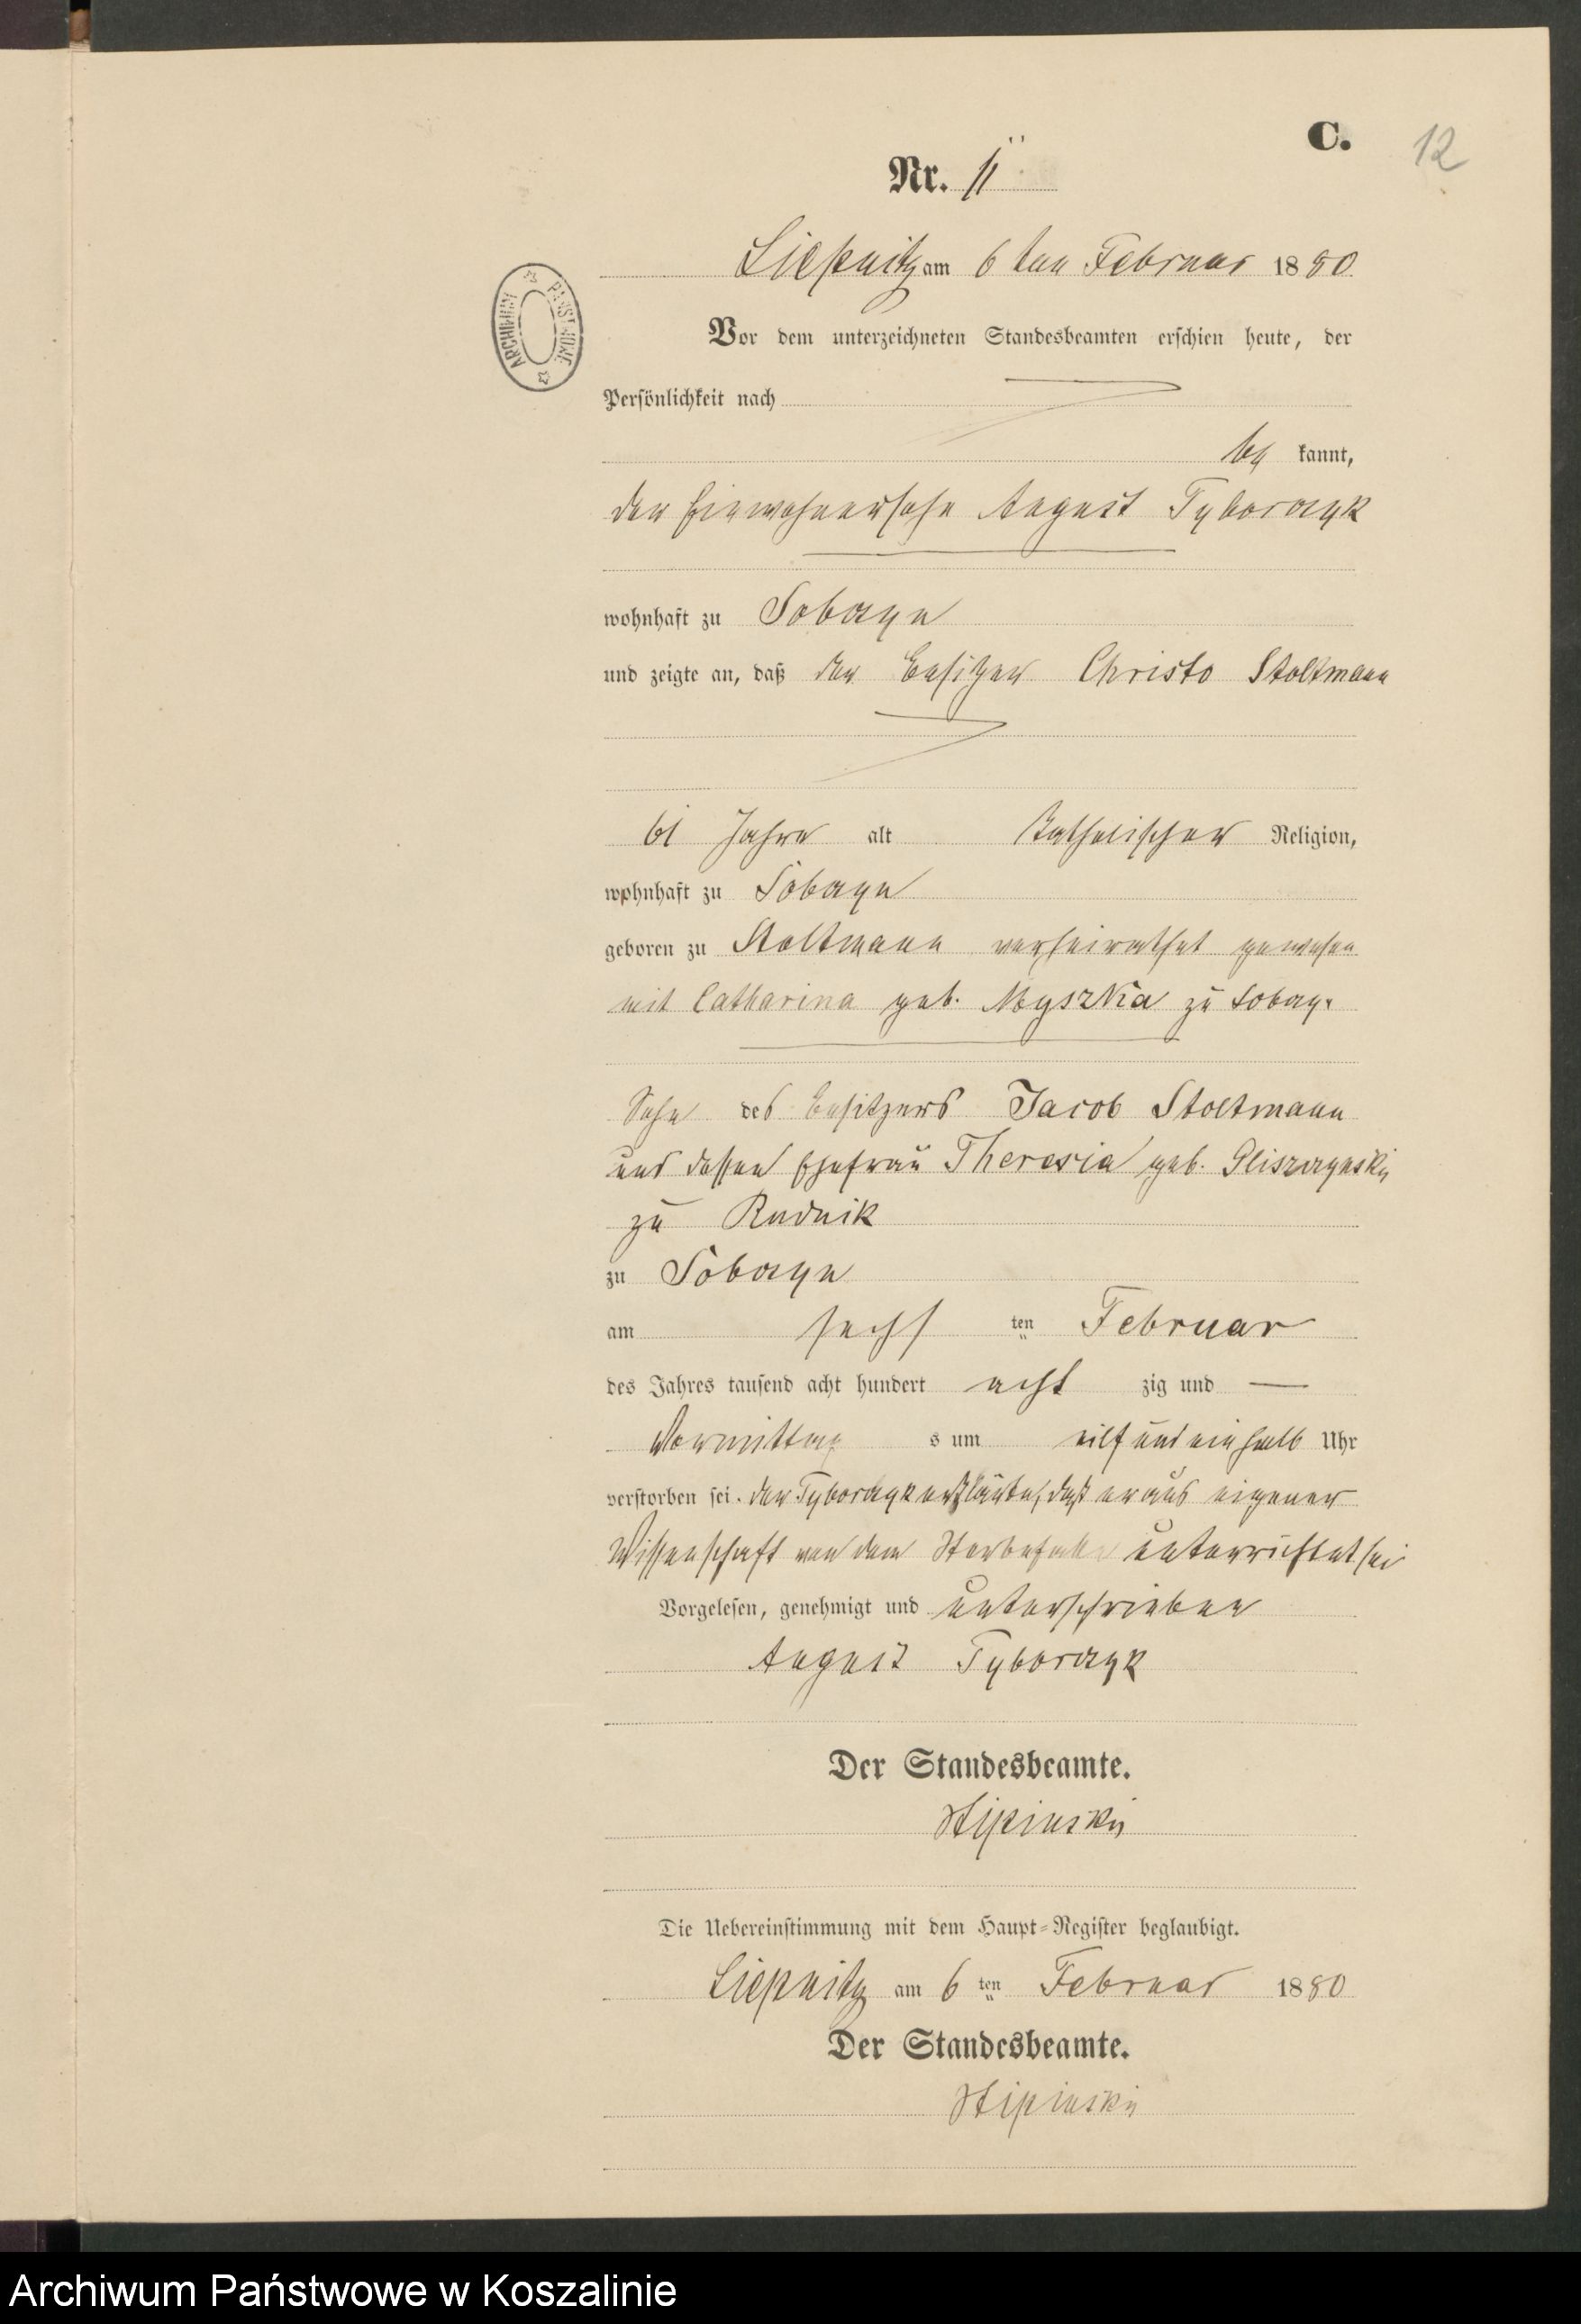 C. 12
Nr. 11
Liepnitz am 6 ten Februar 1880
Vor dem unterzeichneten Standesbeamten erschien heute, der
Persönlichkeit nach
be kannt,
der Einwohnersohn August Tyborczyk
wohnhaft zu Sobczyn
und zeigte an, daß der Besitzer Christo Stoltmann
61 Jahre alt Katholischer Religion,
wohnhaft zu Sobczyn
geboren zu Stoltmann verheirathet gewesen
mit Catharina geb. Myszka zu Sobczyn
Sohn des Besitzers Jacob Stoltmann
und dessen Ehefrau Theresia geb. Gliszczynski
zu Rudnik
zu Sobczyn
am sechs ten Februar
des Jahres tausend acht hundert acht zig und —
Vormittag s um eilf und ein halb Uhr
verstorben sei. der Tyborczyk erklärte, daß er aus eigener
Wissenschaft von dem Sterbefalle unterrichtet sei
Vorgelesen, genehmigt und unterschrieben
August Tyborczyk
Der Standesbeamte.
Die Uebereinstimmung mit dem Haupt-Register beglaubigt.
Liepnitz am 6 ten Februar 1880
Der Standesbeamte.
ARCHIWUM PAŃSTWOWE
Archiwum Państwowe w Koszalinie